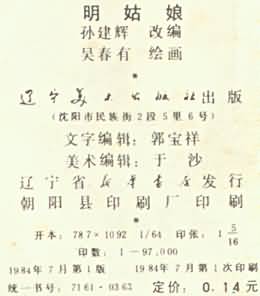 明姑娘
孙建辉 改编
吴春有 绘画
辽宁美术出版社出版
(沈阳市民族街2段5里6号)
文字编辑：郭宝祥
美术编辑：于沙
辽宁省新华书店发行
朝阳县印刷厂印刷
开本：787×1092 1/64 印张：1 5/16
印数：1—97,000
1984年7月第1版 1984年7月第1次印刷
统一书号：7161·0363 定价：0.14元